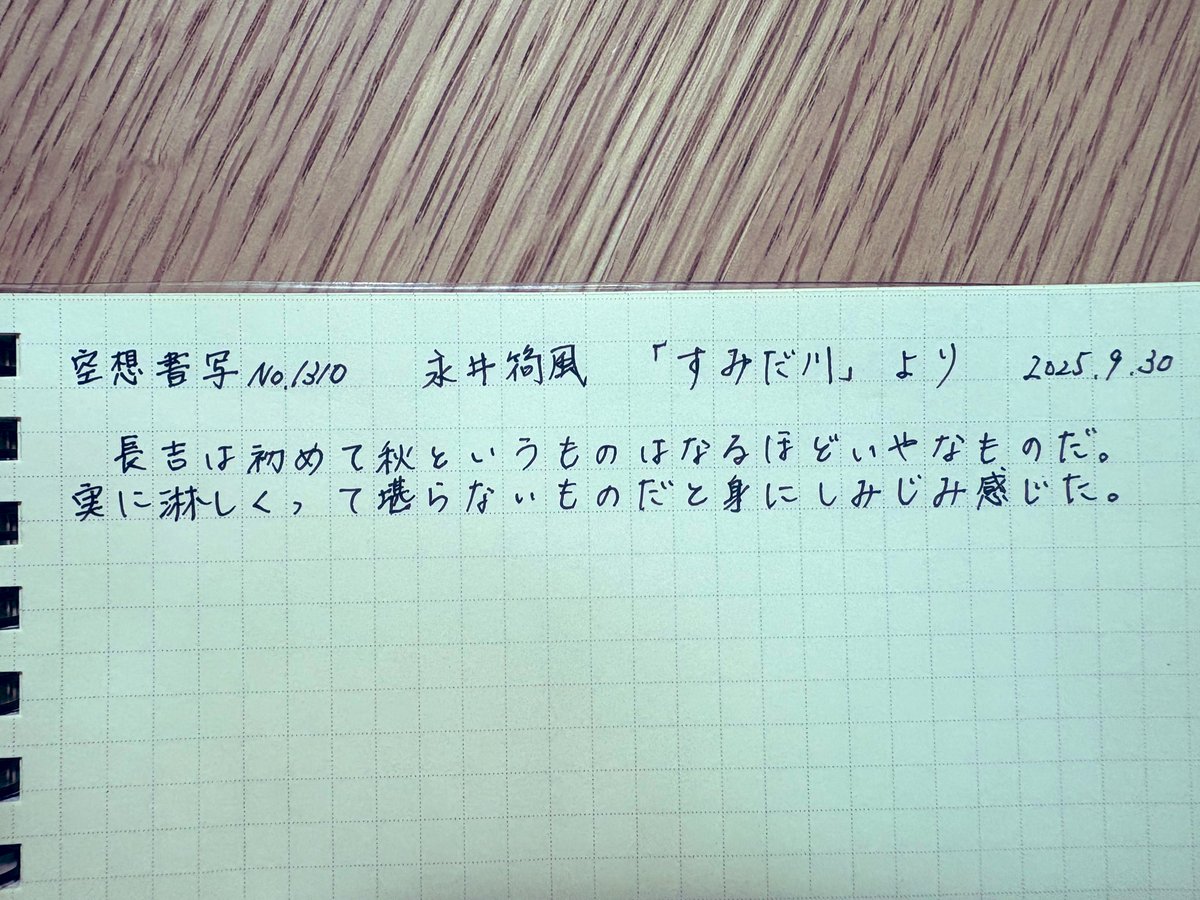 空想書写No.1310 永井荷風 「すみだ川」より 2025.9.30
長吉は初めて秋というものはなるほどいやなものだ。
実に淋しくって堪らないものだと身にしみじみ感じた。